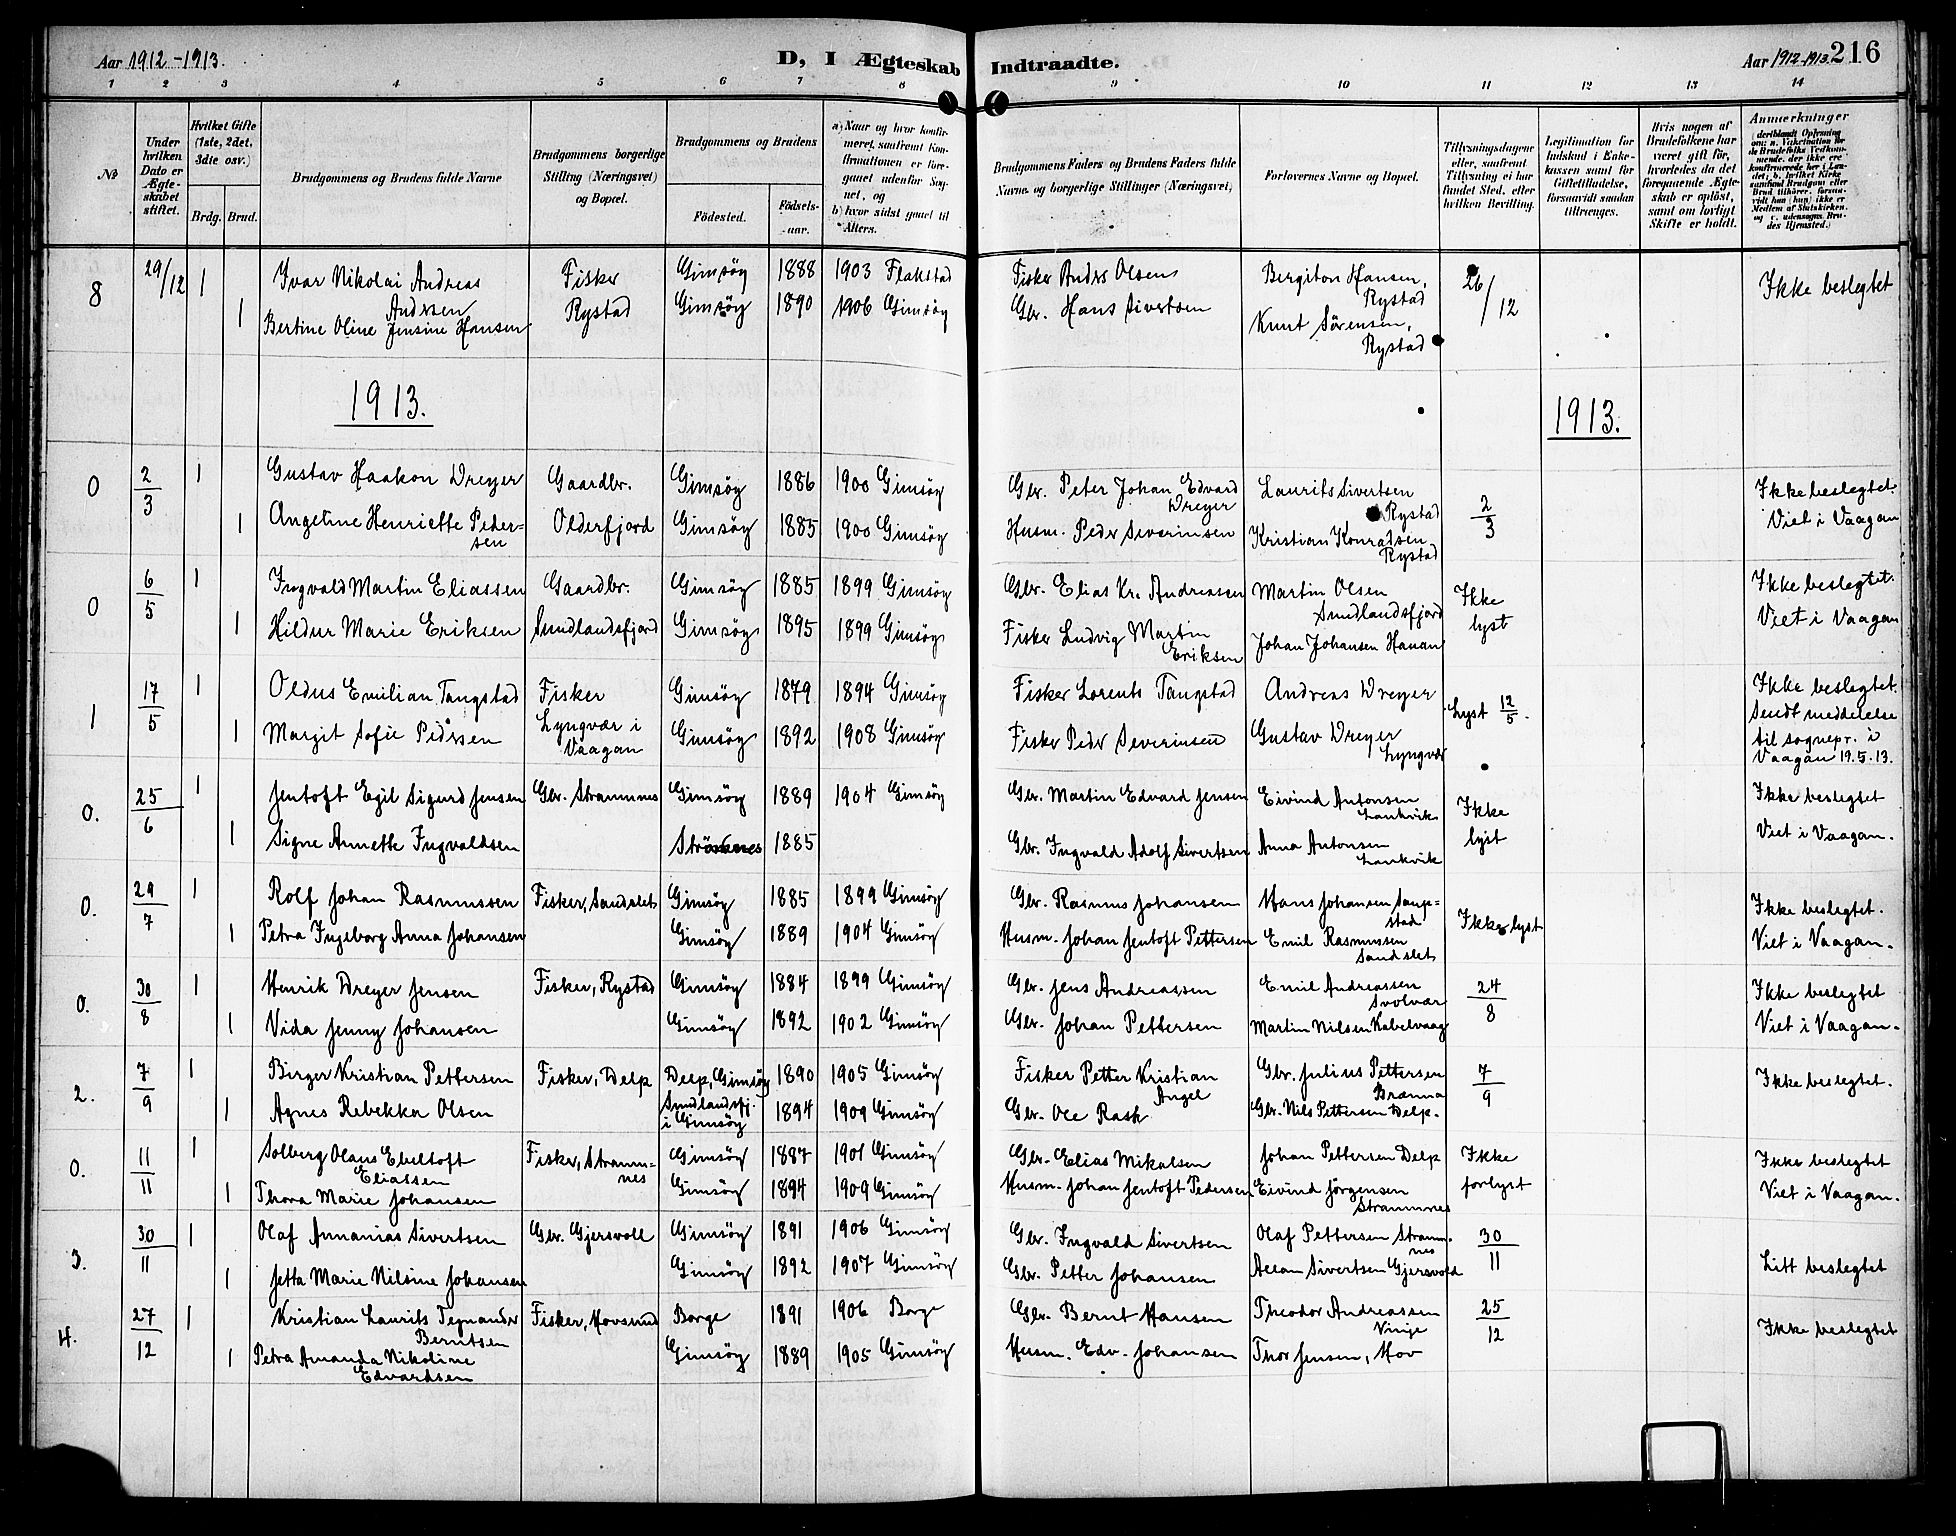 Aar 1912-1913.
D, I Ægteskab Indtraadte.
Aar 1912-1913. 216
1 2 3 4 5 6 7 8 9 10 11 12 13 14
No
Under hvilken Dato er Ægteskabet stiftet.
Hvilket Gifte (1ste, 2det, 3dte osv.)
Brdg. Brud.
Brudgommens og Brudens fulde Navne
Brudgommens borgerlige Stilling (Næringsvei) og Bopæl.
Brudgommens og Brudens
Födested. Födsels-aar.
a) Naar og hvor konfirmeret, saafremt Konfirmationen er foregaaet udenfor Sognet, og
b) hvor sidst gaaet til Alters.
Brudgommens Faders og Brudens Faders fulde Navne og borgerlige Stillinger (Næringsvei)
Forlovernes Navne og Bopæl.
Tillysningsdagene eller, saafremt Tillysning ei har fundet Sted, efter hvilken Bevilling.
Legitimation for Indskud i Enkekassen samt for Giftetilladelse, forsaavidt saadan tiltrænges.
Hvis nogen af Brudefolkene har været gift för, hvorledes da det foregaaende Ægteskab er oplöst, samt om lovligt Skifte er holdt.
Anmerkninger
8 29/12 1 Ivar Nikolai Andreas Fisker Gimsöy 1888 1903 Flakstad Fisker Andrs Olsens Bergiton Hansen, 26/12 Ikke beslegtet
Andrsen Rystad
1 Bertine Oline Jensine Hansen Rystad Gimsöy 1890 1906 Gimsöy Gbr. Hans Sivertsen Knut Sörensen,
Rystad
1913. 1913.
0 2/3 1 Gustav Haakon Dreyer Gaardbr. Gimsöy 1886 1900 Gimsöy Gbr. Peter Johan Edvard Laurits Sivertsen 2/3 Ikke beslegtet.
Dreyer Rystad Viet i Vaagan
1 Angeline Henriette Peder- Olderfjord Gimsöy 1885 1900 Gimsöy Husm. Pedr Severinsen Kristian Konradsen
sen Rystad
0 6/5 1 Ingvald Martin Eliassen Gaardbr. Gimsöy 1885 1899 Gimsöy Gbr. Elias Kr. Andreassen Martin Olsen Ikke Ikke beslegtet.
Sundlandsfjord lyst Viet i Vaagan
1 Hildur Marie Eriksen Sundlandsfjord Gimsöy 1895 1899 Gimsöy Fisker Ludvig Martin Johan Johansen Hanan
Eriksen
1 17/5 1 Oldus Emilian Tangstad Fisker Gimsöy 1879 1894 Gimsöy Fisker Lorents Tangstad Andreas Dreyer Lyst 12/5. Ikke beslegtet.
Sendt meddelelse
1 Margit Sofie Pedrsen Lyngvær i Gimsöy 1892 1908 Gimsöy Fisker Pedr Severinsen Gustav Dreyer til sognepr. i
Vaagan Lyngvær Vaagan 19.5.13.
0. 25/6 1 Jentoft Egil Sigurd Jensen Gbr. Stramnes Gimsöy 1889 1904 Gimsöy Gbr. Martin Edvard Jensen Eivind Antonsen Ikke Ikke beslegtet
Lankvik lyst
1 Signe Annette Ingvaldsen 1885 Gbr. Ingvald Adolf Sivertsen Anna Antonsen Viet i Vaagan.
Lankvik
0. 29/7 1 Rolf Johan Rasmussen Fisker, Sandslet Gimsöy 1885 1899 Gimsöy Gbr. Rasmus Johansen Hans Johansen Saup- Ikke lyst Ikke beslegtet.
stad
1 Petra Ingeborg Anna Johansen Gimsöy 1889 1904 Gimsöy Husm. Johan Jentoft Pettersen Emil Rasmussen Viet i Vaagan.
Sandslet
0. 30/8 1 Henrik Dreyer Jensen Fisker, Rystad Gimsöy 1884 1899 Gimsöy Gbr. Jens Andreassen Emil Andreassen 24/8 Ikke beslegtet
Svolvær
1 Vida Jenny Johansen Gimsöy 1892 1902 Gimsöy Gbr. Johan Pettersen Martin Nilsen Kabelvaag Viet i Vaagan.
2. 7/9 1 Birger Kristian Pettersen Fisker, Delp Delp, Gimsöy 1890 1905 Gimsöy Fisker Petter Kristian Gbr. Julius Pettersen 7/9 Ikke beslegtet.
Angel Brænna
1 Agnes Rebekka Olsen Sundlandsfj. i Gimsöy 1894 1909 Gimsöy Gbr. Ole Rask Gbr. Nils Pettersen Delp.
0. 11/11 1 Solberg Olaus Ebeltoft Fisker, Stramm- Gimsöy 1887 1901 Gimsöy Gbr. Elias Mikalsen Johan Pettersen Delp Ikke Ikke beslegtet
Eliassen nes forlyst
1 Thora Marie Johansen Gimsöy 1894 1909 Gimsöy Husm. Johan Jentoft Pedersen Eivind Jörgensen Viet i Vaagan.
Strammnes
3. 30/11 1 Olaf Annanias Sivertsen Gbr. Gjersvoll Gimsöy 1891 1906 Gimsöy Gbr. Ingvald Sivertsen Olaf Pettersen Stramm- 30/11
nes
1 Jetta Marie Nilsine Johansen Gimsöy 1892 1907 Gimsöy Gbr. Petter Johansen Allan Sivertsen Gjersvold Litt beslegtet
4. 27/12 1 Kristian Laurits Tegnander Fisker, Hovsund Borge 1891 1906 Borge Gbr. Bernt Hansen Theodor Andreassen 25/12 Ikke beslegtet
Berntsen Vinje
1 Petra Amanda Nikoline Gimsöy 1889 1905 Gimsöy Husm. Edv. Johansen Thor Jensen, Hov
Edvardsen